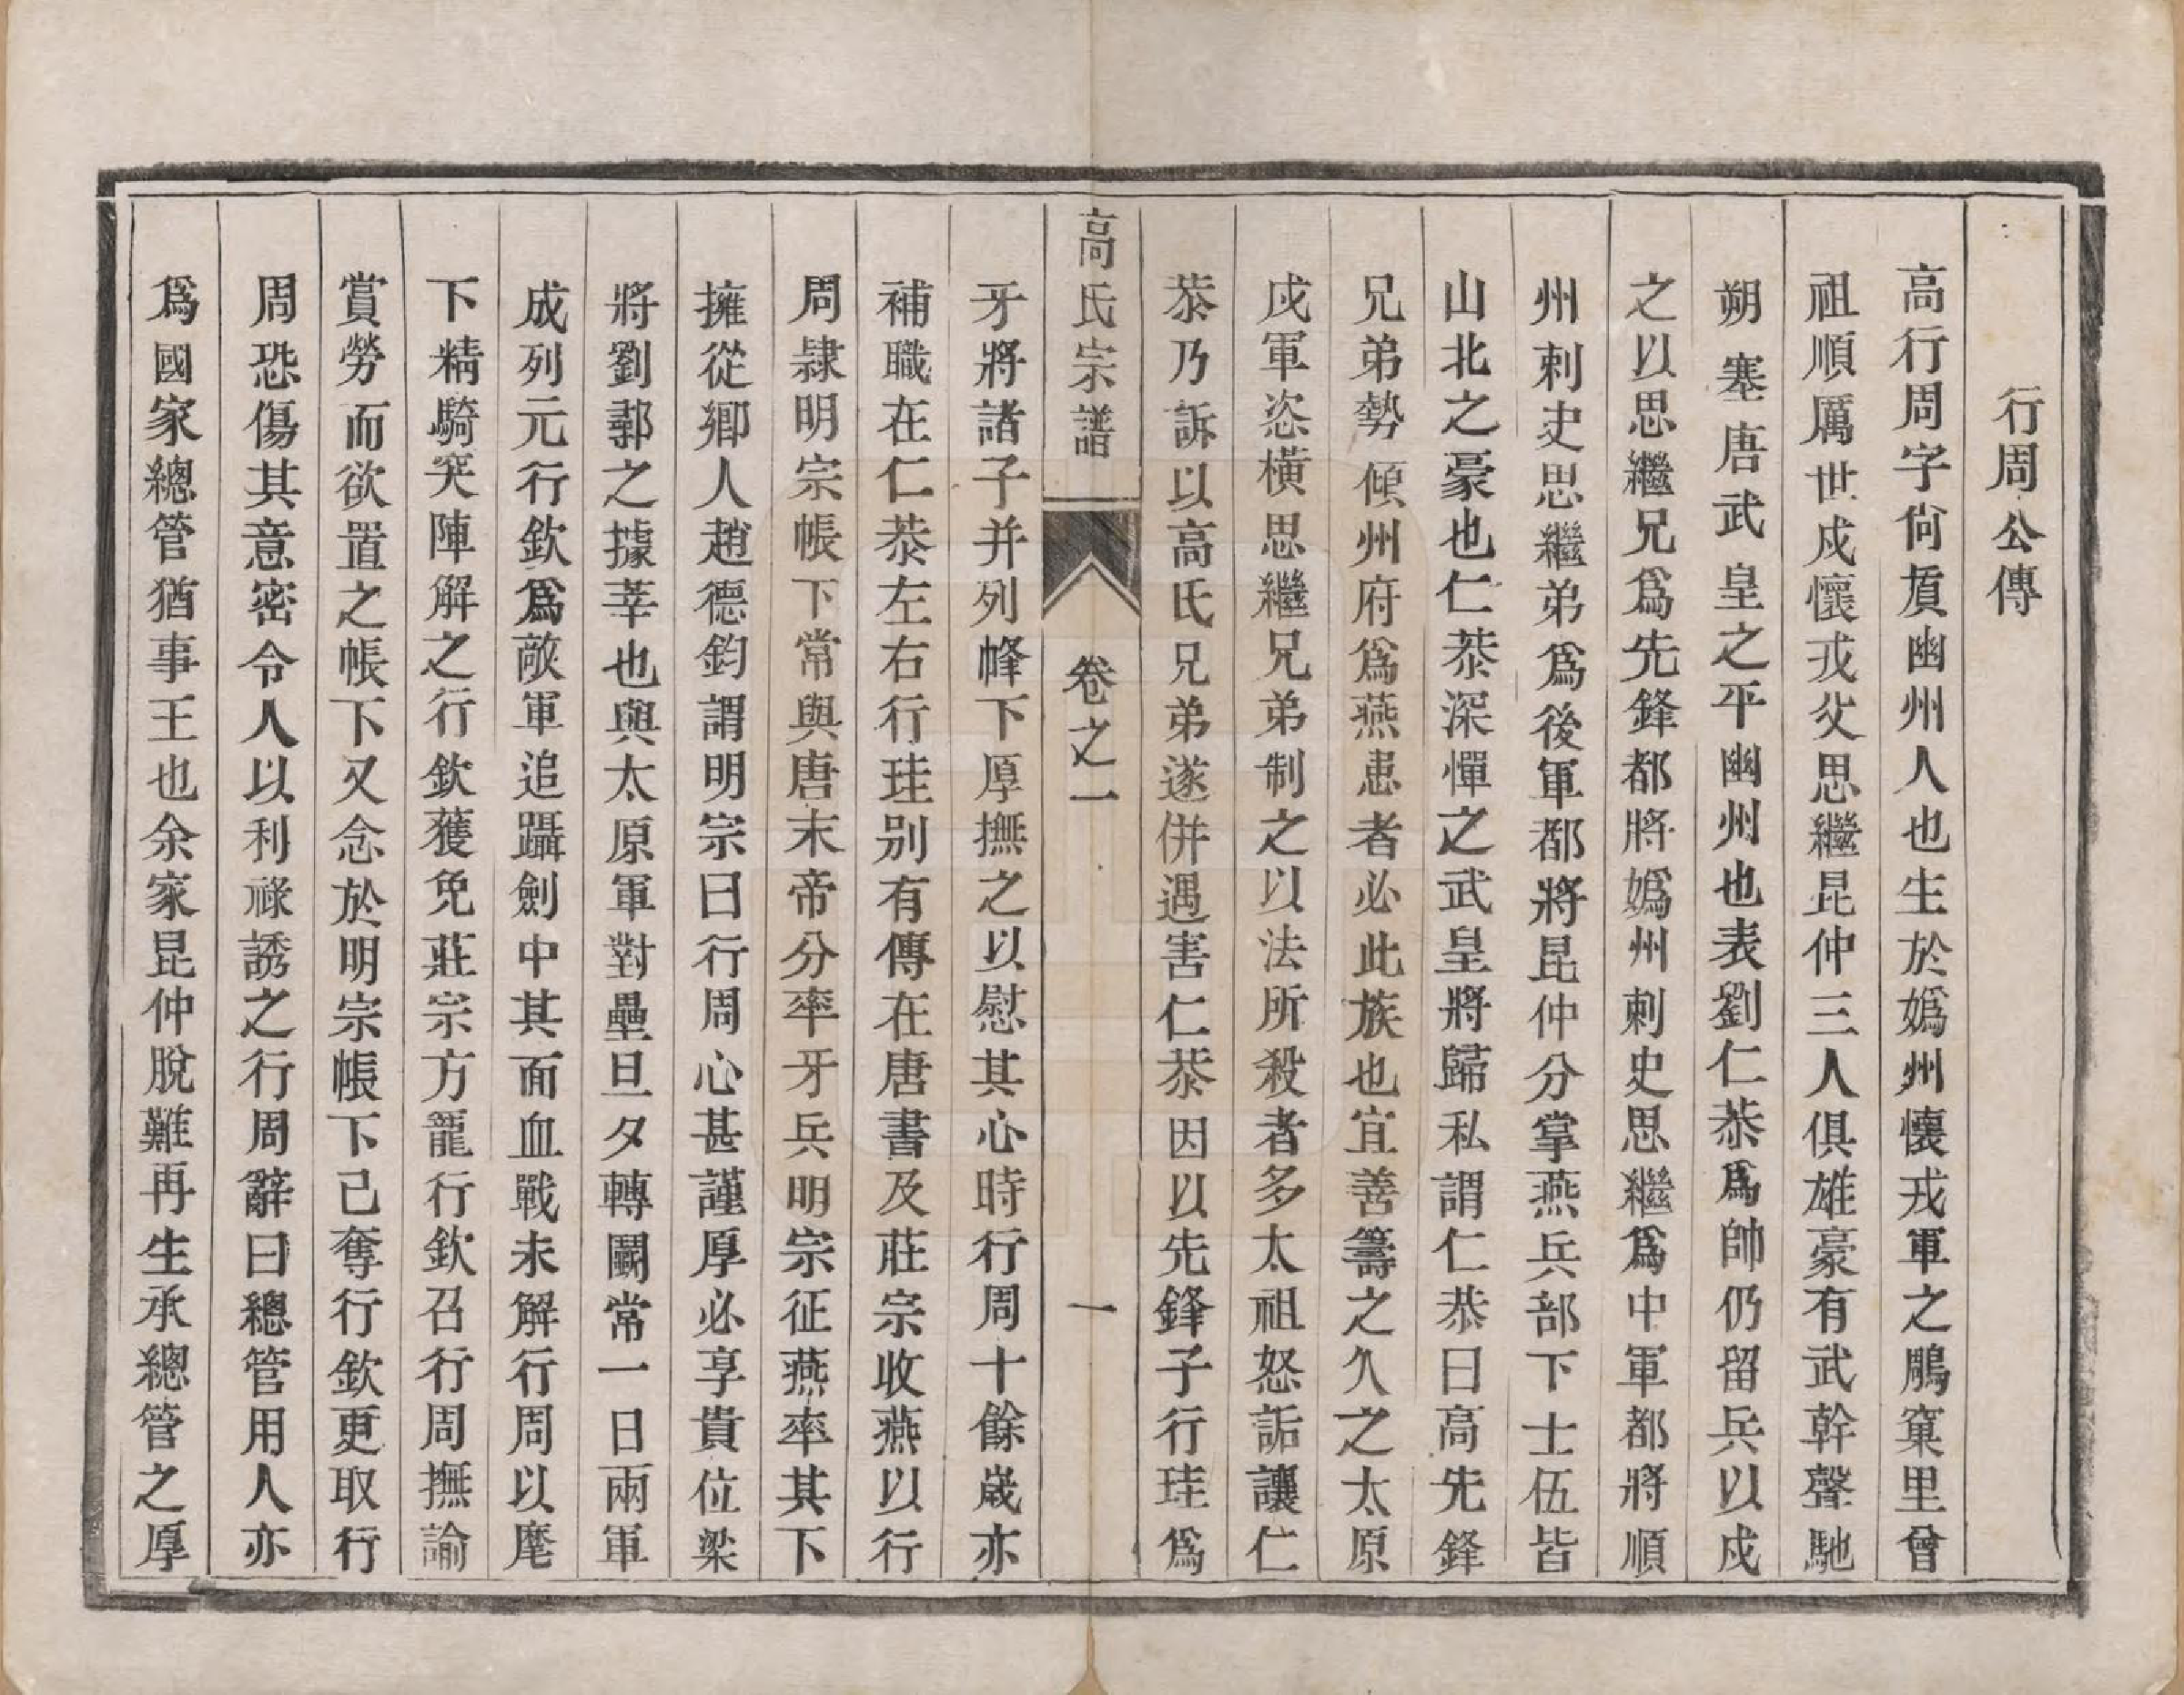 行周公傳
高行周字尙質幽州人也生於嬀州懷戎軍之鵰窠里曾
祖順厲世戍懷戎父思繼昆仲三人俱雄豪有武幹聲馳
朔塞唐武皇之平幽州也表劉仁恭爲帥仍留兵以戍
之以思繼兄爲先鋒都將嬀州刺史思繼爲中軍都將順
州刺史思繼弟爲後軍都將昆仲分掌燕兵部下士伍皆
山北之豪也仁恭深憚之武皇將歸私謂仁恭曰高先鋒
兄弟勢傾州府爲燕患者必此族也宜善籌之久之太原
戍軍恣橫思繼兄弟制之以法所殺者多太祖怒詬讓仁
恭乃訴以高氏兄弟遂併遇害仁恭因以先鋒子行珪爲
高氏宗譜
卷之一
一
牙將諸子并列帳下厚撫之以慰其心時行周十餘歲亦
補職在仁恭左右行珪别有傳在唐書及莊宗收燕以行
周隸明宗帳下常與唐末帝分率牙兵明宗征燕率其下
擁從鄉人趙德鈞謂明宗曰行周心甚謹厚必享貴位梁
將劉鄩之據莘也與太原軍對壘旦夕轉鬭常一日兩軍
成列元行欽爲敵軍追躡劍中其面血戰未解行周以麾
下精騎突陣解之行欽獲免莊宗方寵行欽召行周撫諭
賞勞而欲置之帳下又念於明宗帳下己奪行欽更取行
周恐傷其意密令人以利祿誘之行周辭曰總管用人亦
爲國家總管猶事王也余家昆仲脫難再生承總管之厚